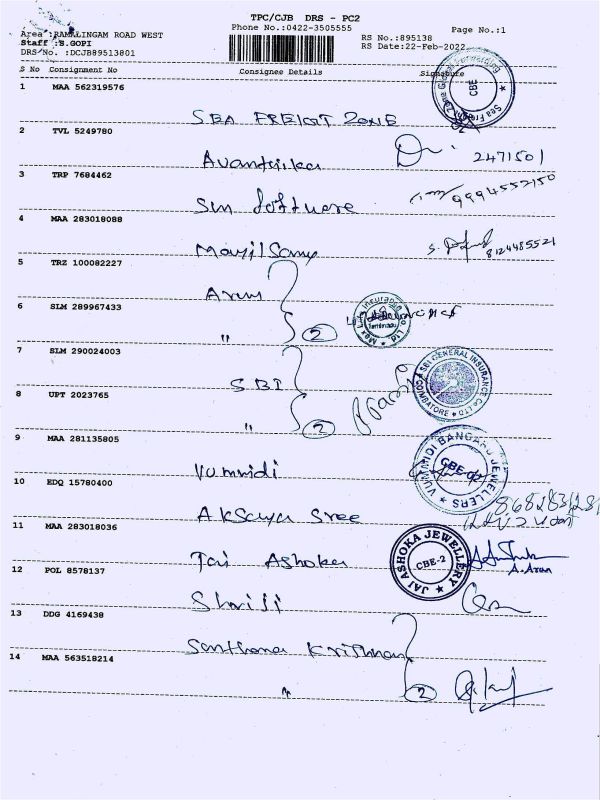 TPC/CJB DRS - PC2
Phone No.:0422-3505555
Page No.:1
Area :RAMALINGAM ROAD WEST
Staff :S.GOPI
DRS No. :DCJB89513801
RS No.:895138
RS Date:22-Feb-2022
S No Consignment No Consignee Details Signature
1 MAA 562319576
SEA FREIGT ZONE
2 TVL 5249780
Avantika 2471501
3 TRP 7684462
Sun Software 9994552150
4 MAA 283018088
Mayilsamy 8124485521
5 TRZ 100082227
Arun
6 SLM 289967433
" 2
7 SLM 290024003
SBI
SBI GENERAL INSURANCE CO LTD
COIMBATORE
8 UPT 2023765
" 2
9 MAA 281135805
Vummidi
VUMMIDI BANGARU JEWELLERS
CBE-02
10 EDQ 15780400
Aksaya Sree
11 MAA 283018036
Jai Ashoka
JAI ASHOKA JEWELLERY
CBE-2
A. Arun
12 POL 8578137
Shariji
13 DDG 4169438
Santhana Krithnan
14 MAA 563518214
" 2